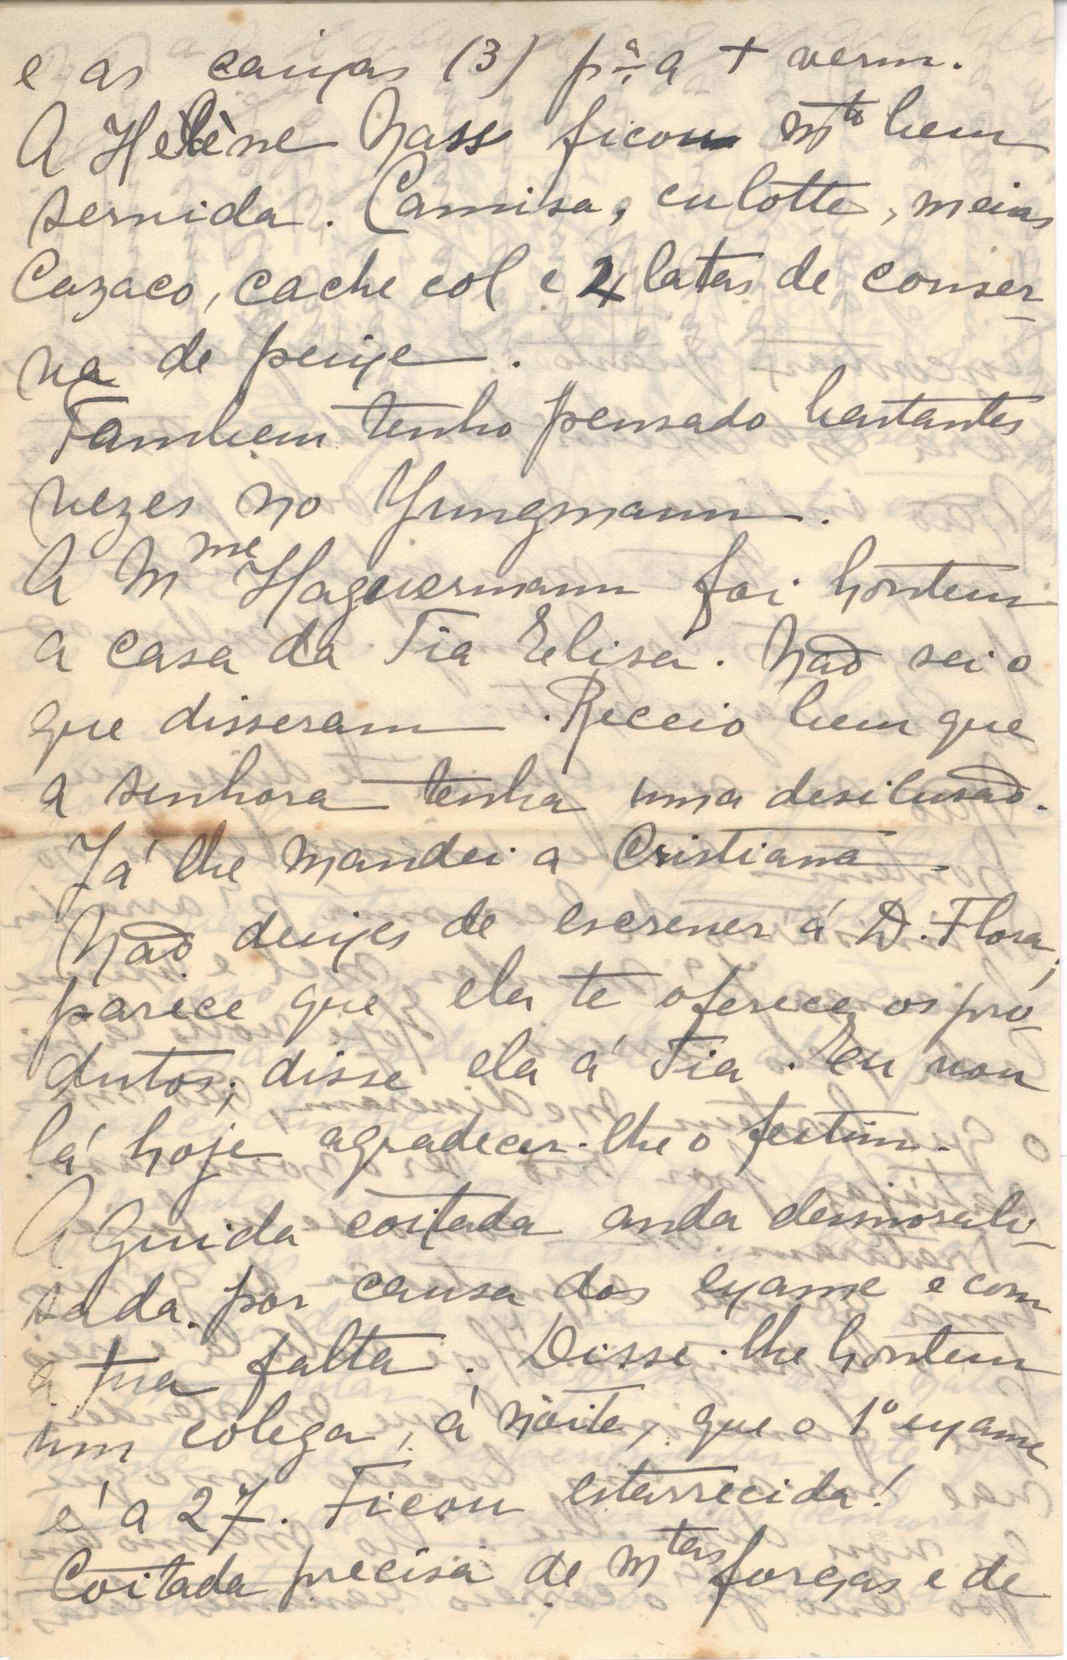 e as caixas (3) pª a + verm.
A Hélène Nass ficou mto bem
servida. Camisa, culotte, meias
Cazaco, cache col e 4 latas de conser-
va de peixe.
Tambem tenho pensado bastantes
vezes no Yungmann.
A Mme Haguermann foi hontem
a casa da Tia Elisa. Não sei o
que disseram. Receio bem que
a senhora tenha uma desilusão.
Já lhe mandei a Cristiana.
Não deixes de escrever á D. Flora;
parece que ela te oferece os pro-
dutos; disse ela á Tia. Eu vou
lá hoje agradecer-lhe o festim.
A Guida coitada anda desmorali-
sada por causa dos exame e com
a tua falta. Disse-lhe hontem
um colega, á noite, que o 1º exame
é a 27. Ficou estarrecida!
Coitada precisa de mtas forças e de